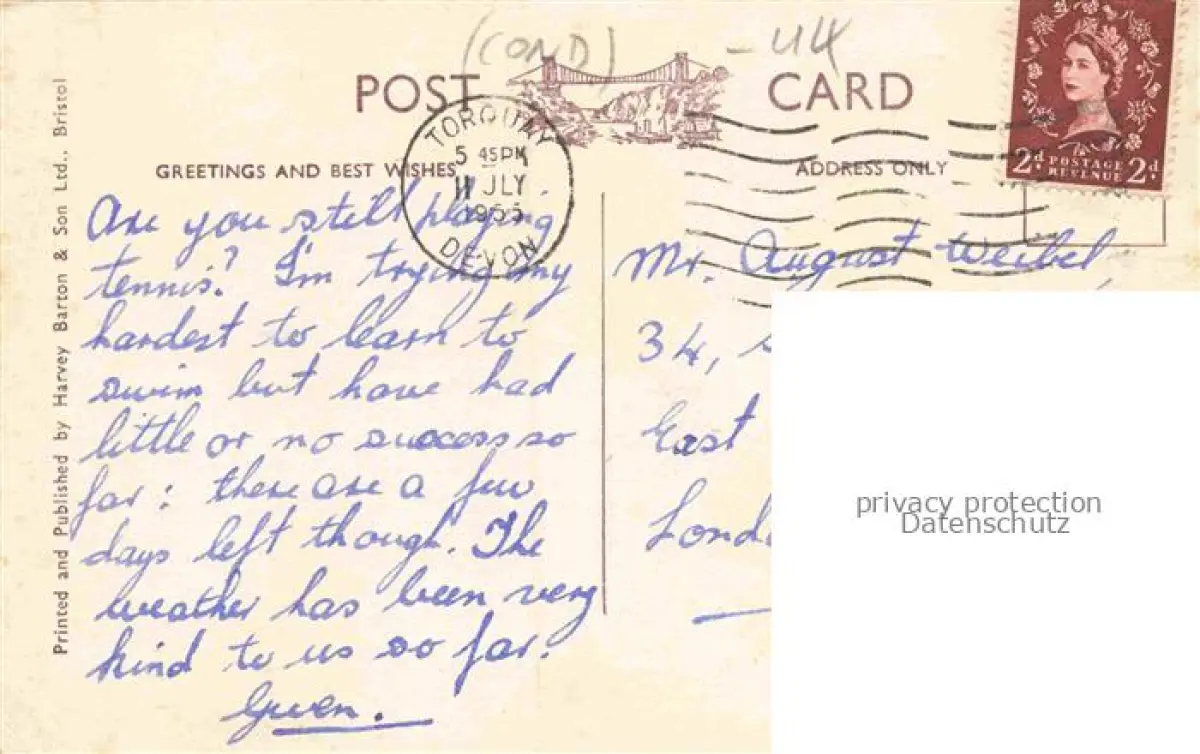 (COND) - 44
POST CARD
TORQUAY
5 45 PM
11 JLY
1955
DEVON
2d POSTAGE REVENUE 2d
GREETINGS AND BEST WISHES
ADDRESS ONLY
Are you still playing
tennis? I'm trying my
hardest to learn to
swim but have had
little or no success so
far: there are a few
days left though. The
weather has been very
kind to us so far.
Gwen.
Mr. August Weibel,
34,
East
London
privacy protection
Datenschutz
Printed and Published by Harvey Barton & Son Ltd., Bristol